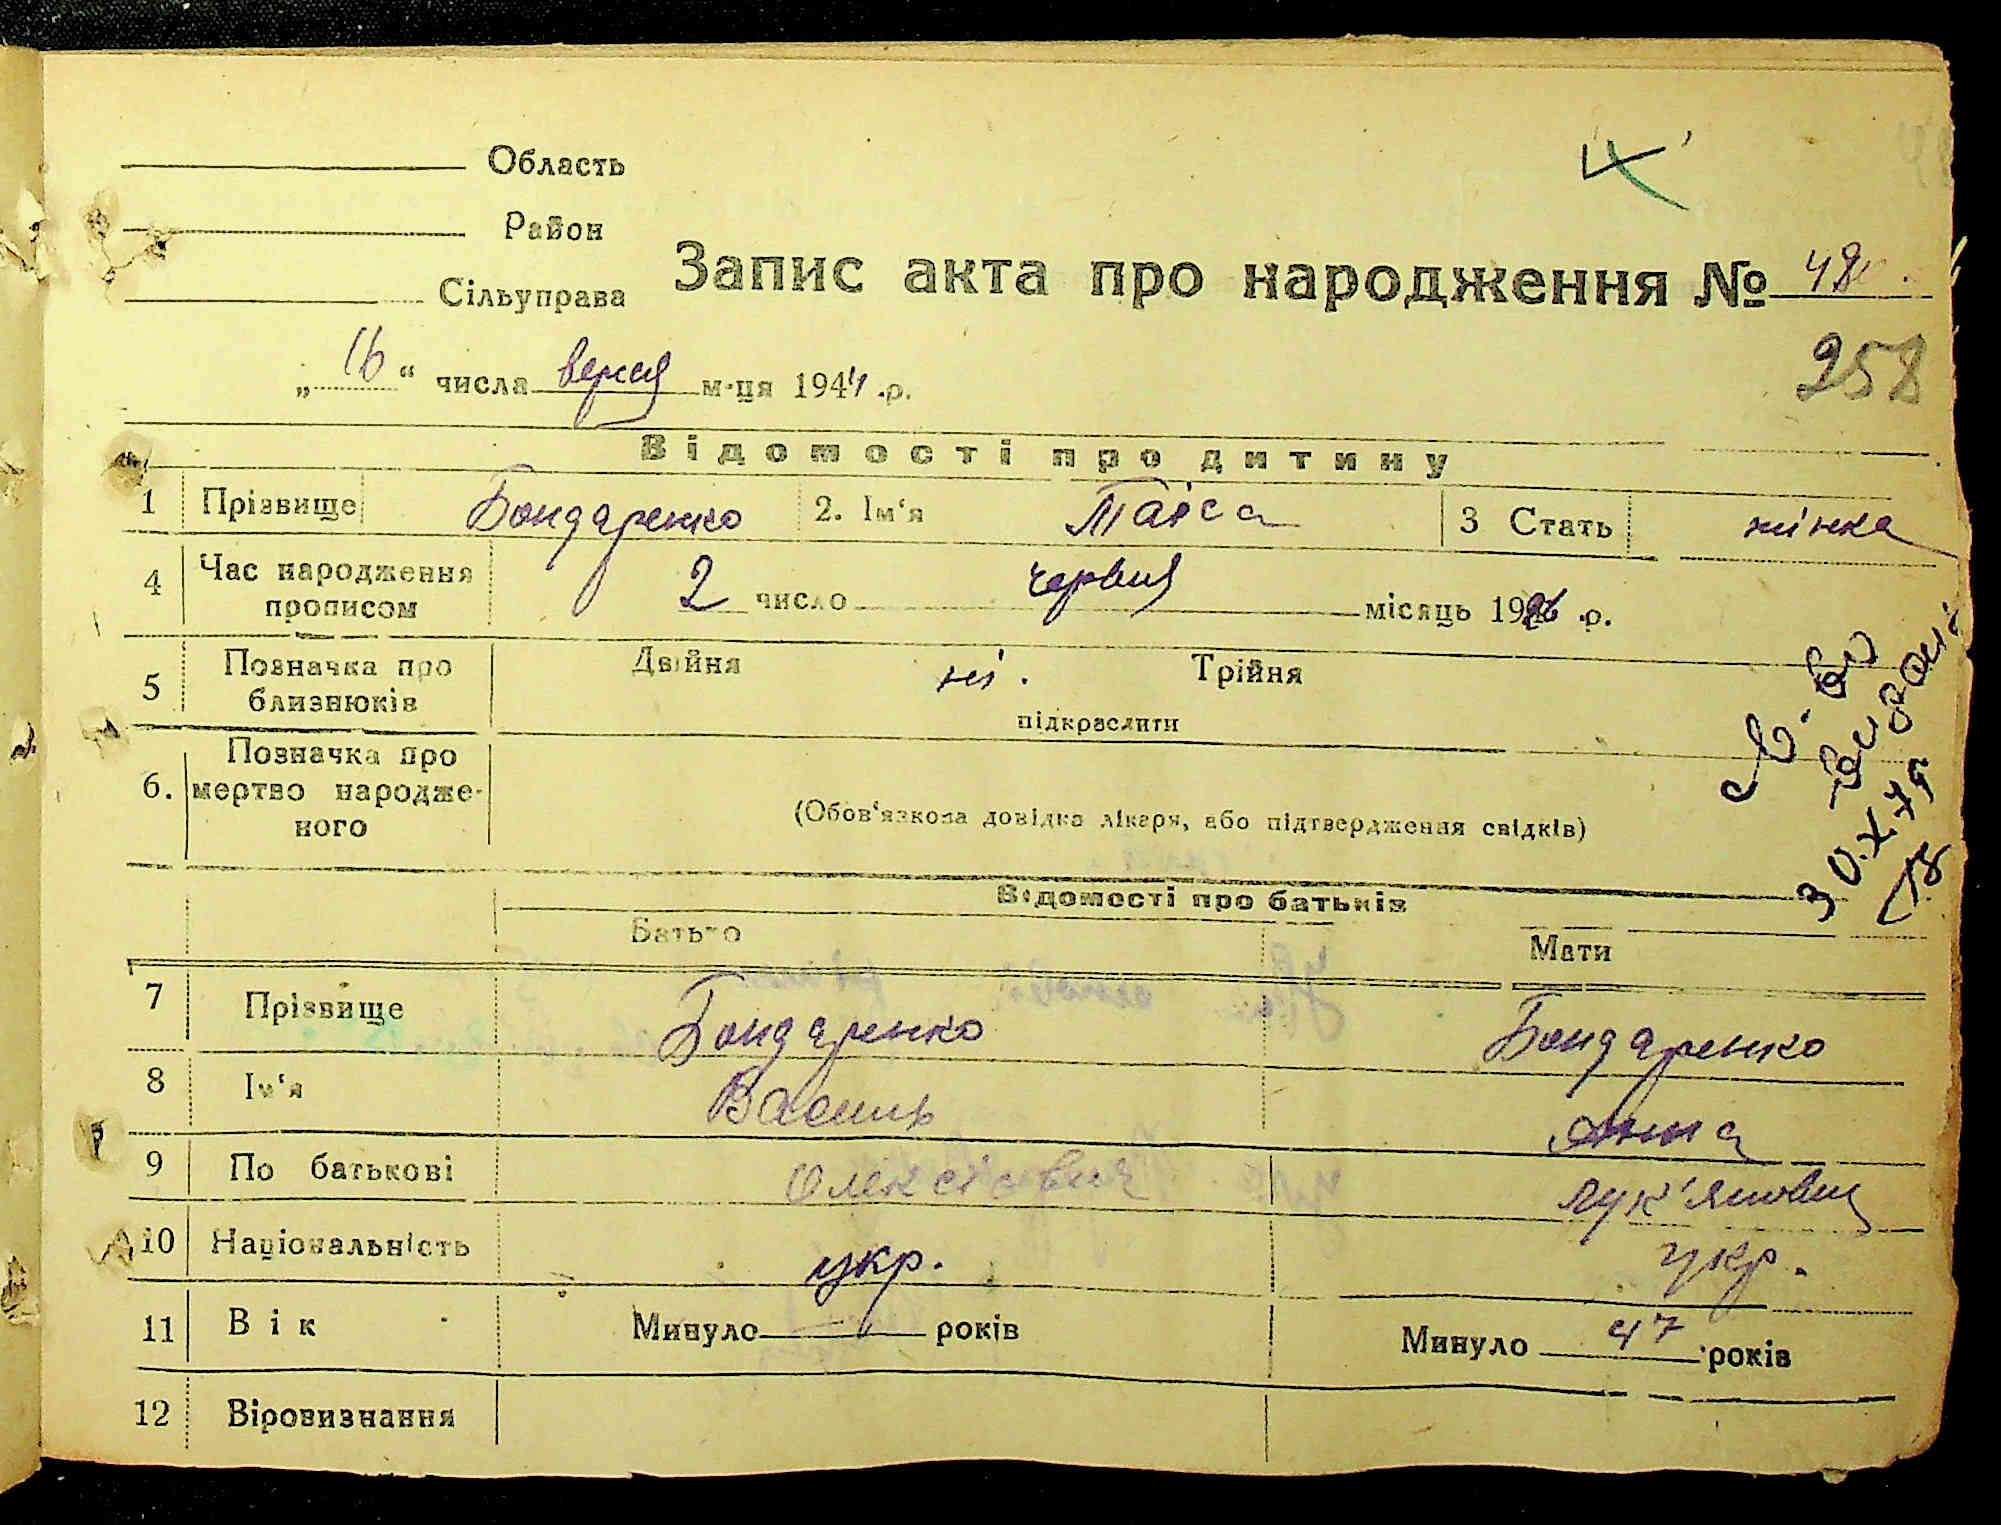 Область
Район
Сільуправа
Запис акта про народження № 48
258
„16“ числа верся м-ця 1944 .р.
Відомості про дитину
1 Прізвище Бондаренко 2. Ім'я Таіса 3 Стать жінка
4 Час народження прописом 2 число червня місяць 1926 .р.
5 Позначка про близнюків Двійня ні. Трійня
підкраслити
6. Позначка про мертво народженого
(Обов'язкова довідка лікаря, або підтвердження свідків)
30.X.75
Відомості про батьків
Батько Мати
7 Прізвище Бондаренко Бондаренко
8 Ім'я Василь Анна
9 По батькові Олексієвич Лук'яновн
10 Національність укр. укр.
11 Вік Минуло — років Минуло 47 років
12 Віровизнання